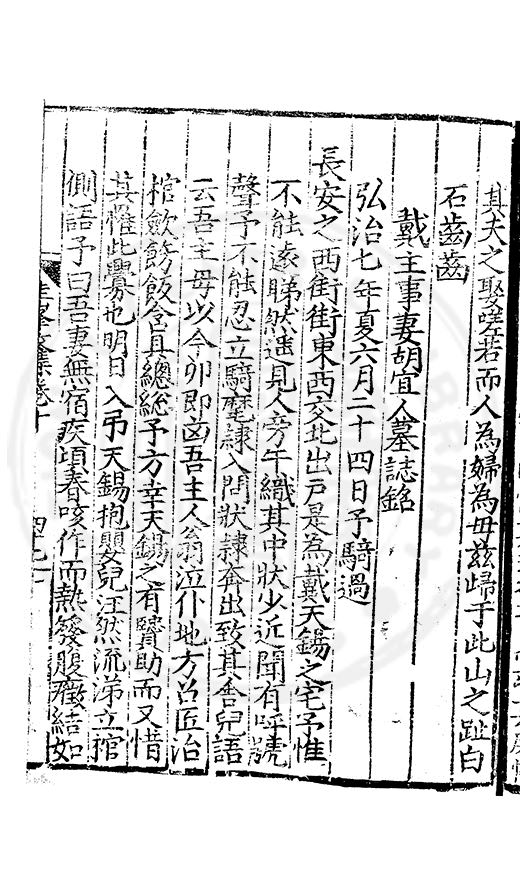 其夫之娶嗟若而人為婦為毋兹歸于此山之趾白
石齒齒
戴主事妻胡宜人墓誌銘
弘治七年夏六月二十四日予騎過
長安之西街街東西交北出戸是為戴天錫之宅予惟
不能遽睇然遙見人旁午織其中狀少近聞有呼號
聲予不能忍立騎麾隷入問狀隷奔出致其舎兒語
云吾主毋以今卯即凶吾主人翁泣仆地方召匠治
棺歛飭飯含具總總予方幸天錫之有贒助而又惜
其罹此釁也明日入弔天錫抱嬰兒汪然流涕立棺
側語予曰吾妻無宿疾頃春咳作而熱發腹癥結如
文集卷十